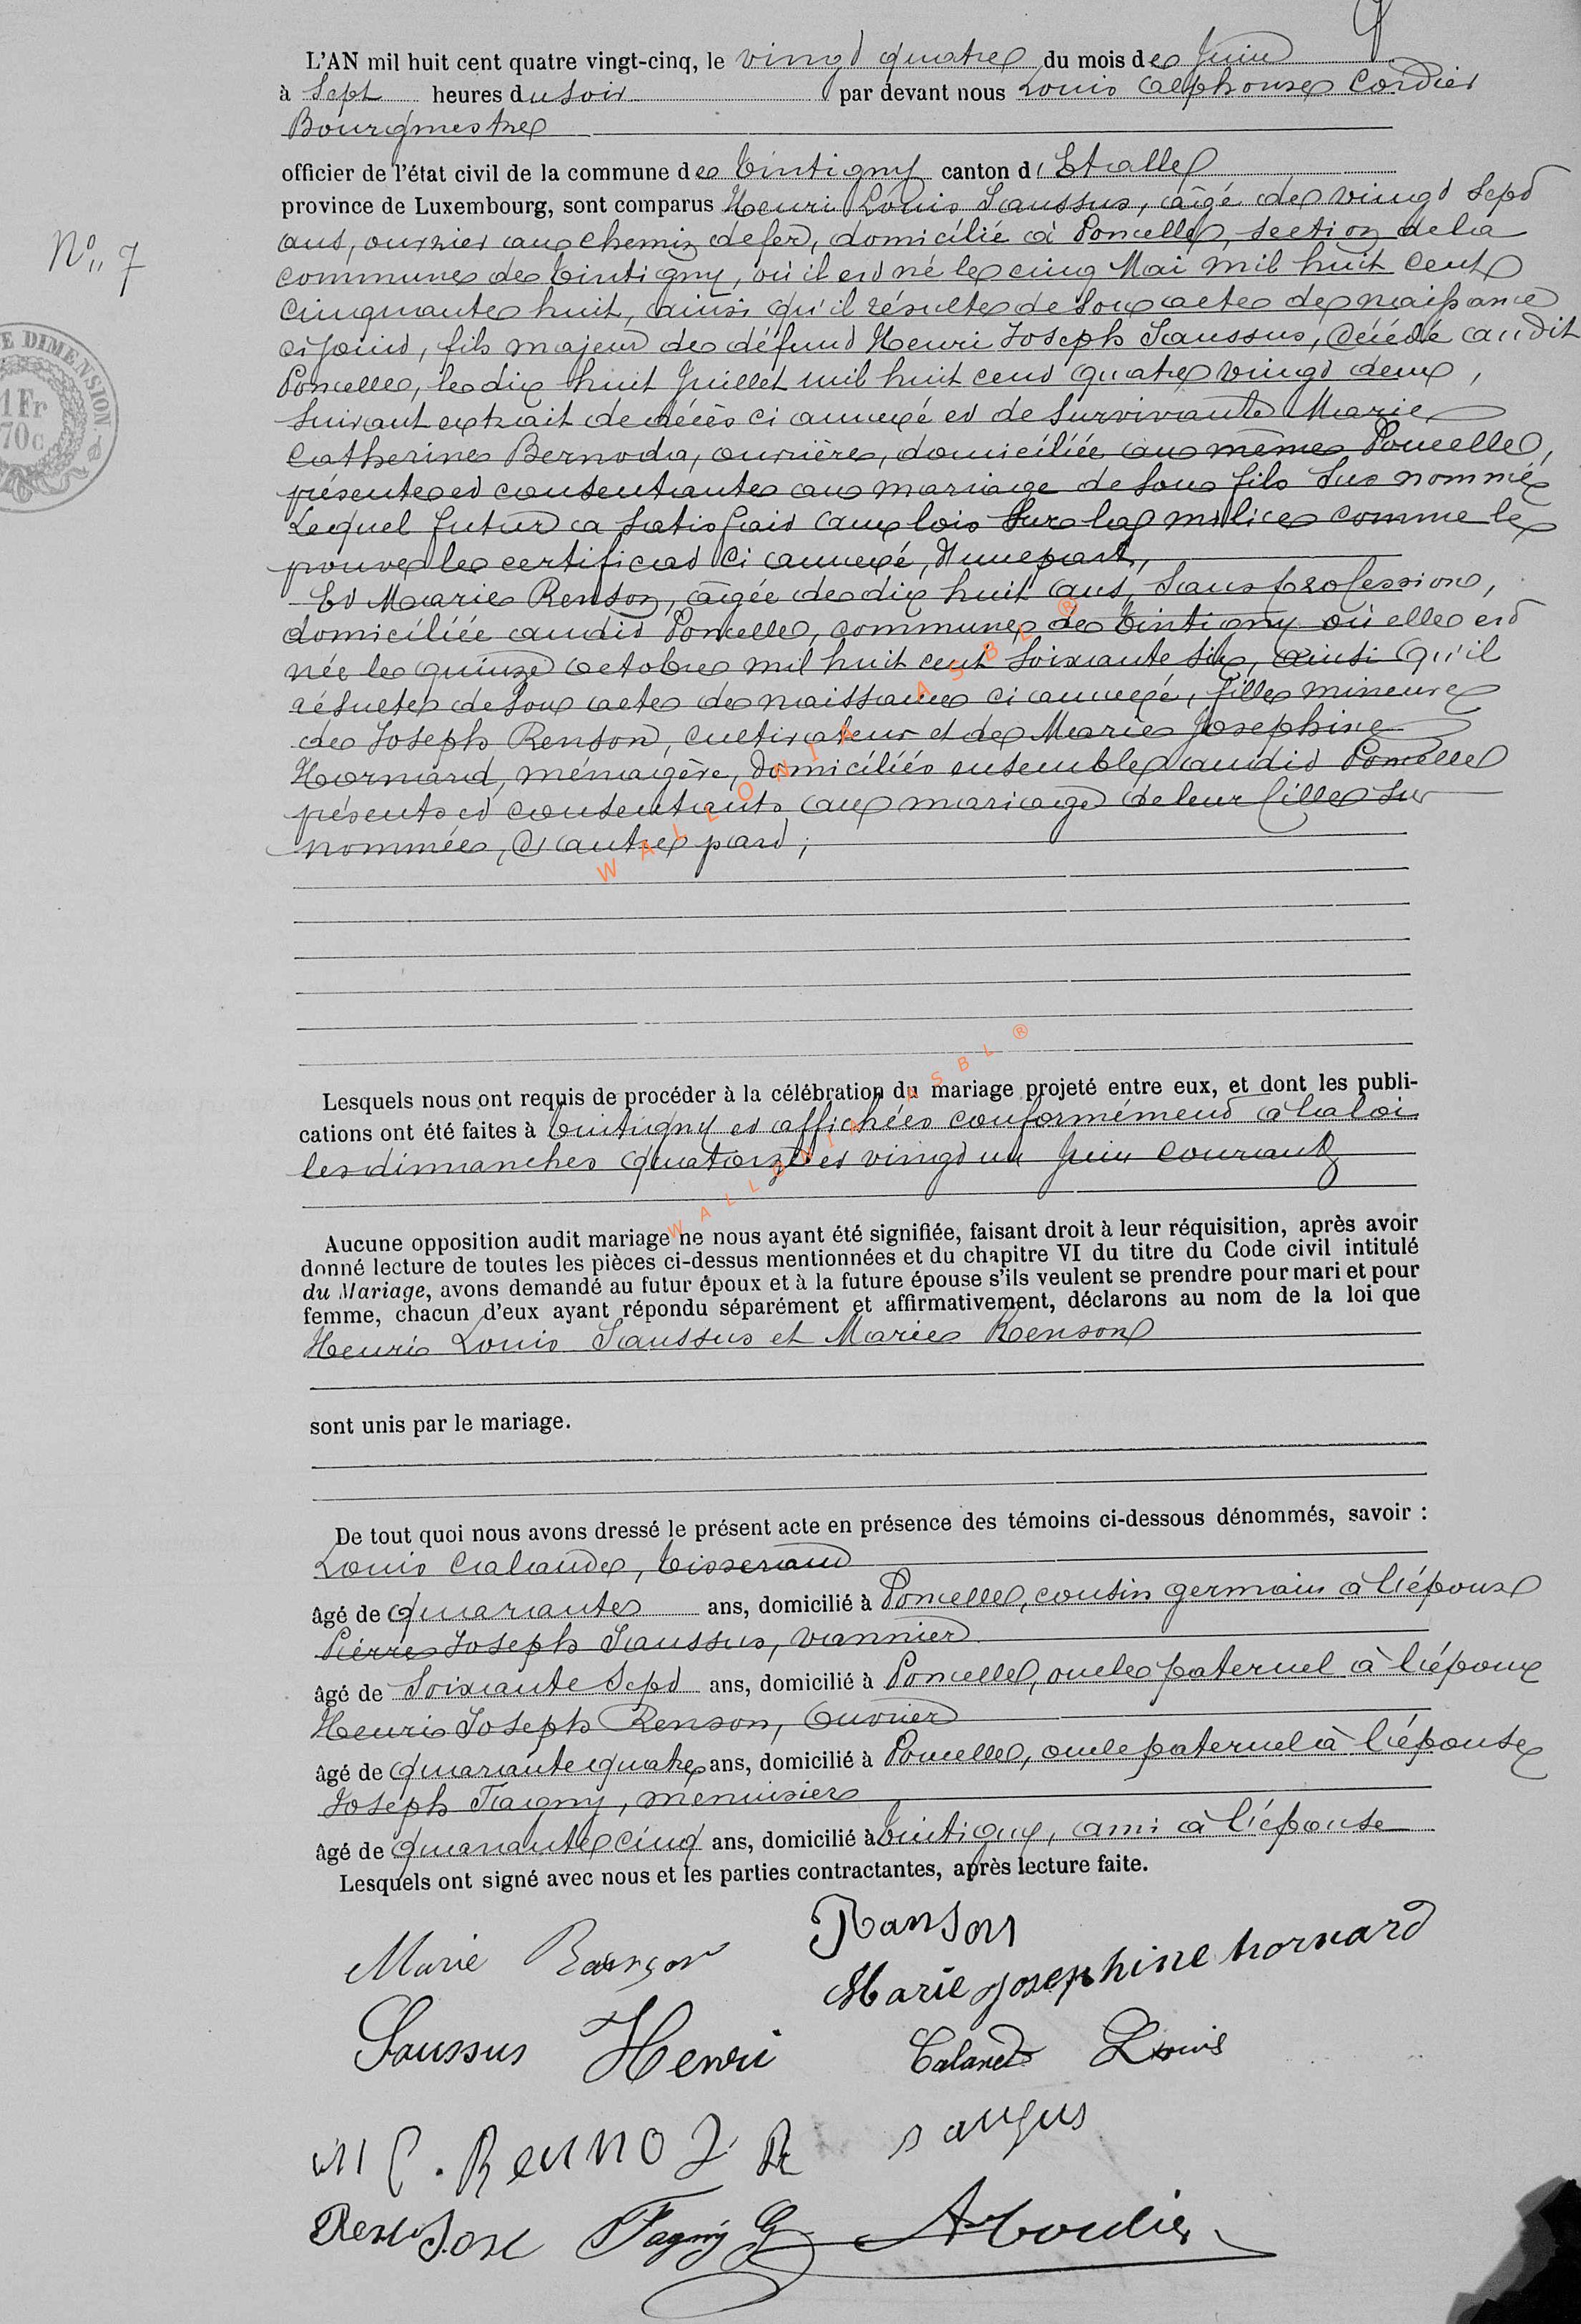 L'AN mil huit cent quatre vingt-cinq, le vingt quatre du mois de Juin
à Sept heures du Soir par devant nous Louis Alphonse Cordier
Bourgmestre
officier de l'état civil de la commune de Tintigny canton d' Etalle
province de Luxembourg, sont comparus Henri Louis Saussus, âgé de vingt Sept
ans, ouvrier au chemin de fer, domicilié à Poncelle, section de la
commune de Tintigny, où il est né le cinq Mai mil huit cent
Cinquante huit, ainsi qu'il résulte de Son acte de naissance
ci joint, fils majeur de défunt Henri Joseph Saussus, décédé audit
Poncelle, le dix huit Juillet mil huit cent quatre vingt deux,
Suivant extrait de décès ci annexé et de Survivante Marie
Catherine Bernoda, ouvrière, domiciliée au même Poncelle,
présente et consentante au mariage de Son fils Sus nommé
Lequel futur a Satisfait aux lois Sur la milice comme le
prouve le certificat ci annexé, d'une part,
Et Marie Renson, âgée de dix huit ans, Sans profession,
domiciliée audit Poncelle, commune de Tintigny où elle est
née le quinze octobre mil huit cent Soixante Six, ainsi qu'il
résulte de Son acte de naissance ci annexé, fille mineure
de Joseph Renson, cultivateur et de Marie Josephine
Hornard, ménagère, domiciliés ensemble audit Poncelle
présents et consentants au mariage de leur fille Sus
nommée, d'autre part;
N° 7
E DIMENSION
1 Fr
70c
WALLONIA ASBL ®
Lesquels nous ont requis de procéder à la célébration du mariage projeté entre eux, et dont les publi-
cations ont été faites à Tintigny et affichées conformément à la loi
les dimanches quatorze et vingt un Juin courant
WALLONIA ASBL ®
Aucune opposition audit mariage ne nous ayant été signifiée, faisant droit à leur réquisition, après avoir
donné lecture de toutes les pièces ci-dessus mentionnées et du chapitre VI du titre du Code civil intitulé
du Mariage, avons demandé au futur époux et à la future épouse s'ils veulent se prendre pour mari et pour
femme, chacun d'eux ayant répondu séparément et affirmativement, déclarons au nom de la loi que
Henri Louis Saussus et Marie Renson
sont unis par le mariage.
De tout quoi nous avons dressé le présent acte en présence des témoins ci-dessous dénommés, savoir :
Louis Calande, tisserand
âgé de quarante ans, domicilié à Poncelle, cousin germain à l'époux
Pierre Joseph Saussus, vannier
âgé de Soixante Sept ans, domicilié à Poncelle, oncle paternel à l'époux
Henri Joseph Renson, Ouvrier
âgé de quarante quatre ans, domicilié à Poncelle, oncle paternel à l'épouse
Joseph Fagny, menuisier
âgé de quarante cinq ans, domicilié à Tintigny, ami à l'épouse
Lesquels ont signé avec nous et les parties contractantes, après lecture faite.
Marie Rançon Ranson
Marie josephine hornard
Saussus Henri Caland Louis
M C. Rennoz sausus
Renson Fagny J ACordier